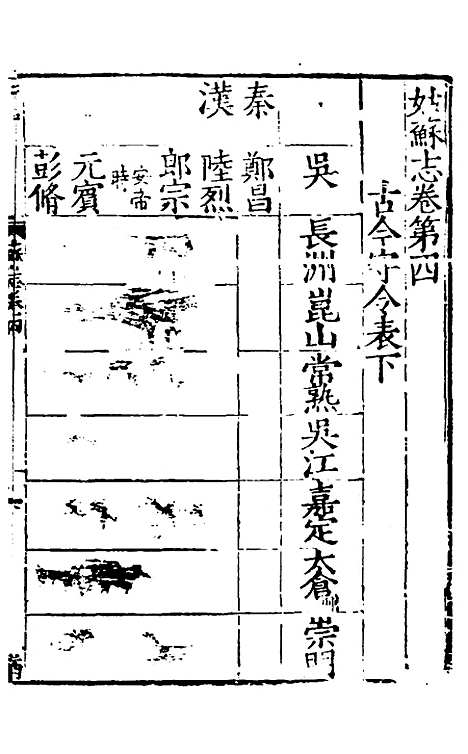 姑蘇志卷第四
古今守令表下
吳 長洲 崑山 常熟 吳江 嘉定 太倉州 崇明
秦 鄭昌
漢 陸烈
郎宗 安帝時
元賓
彭脩